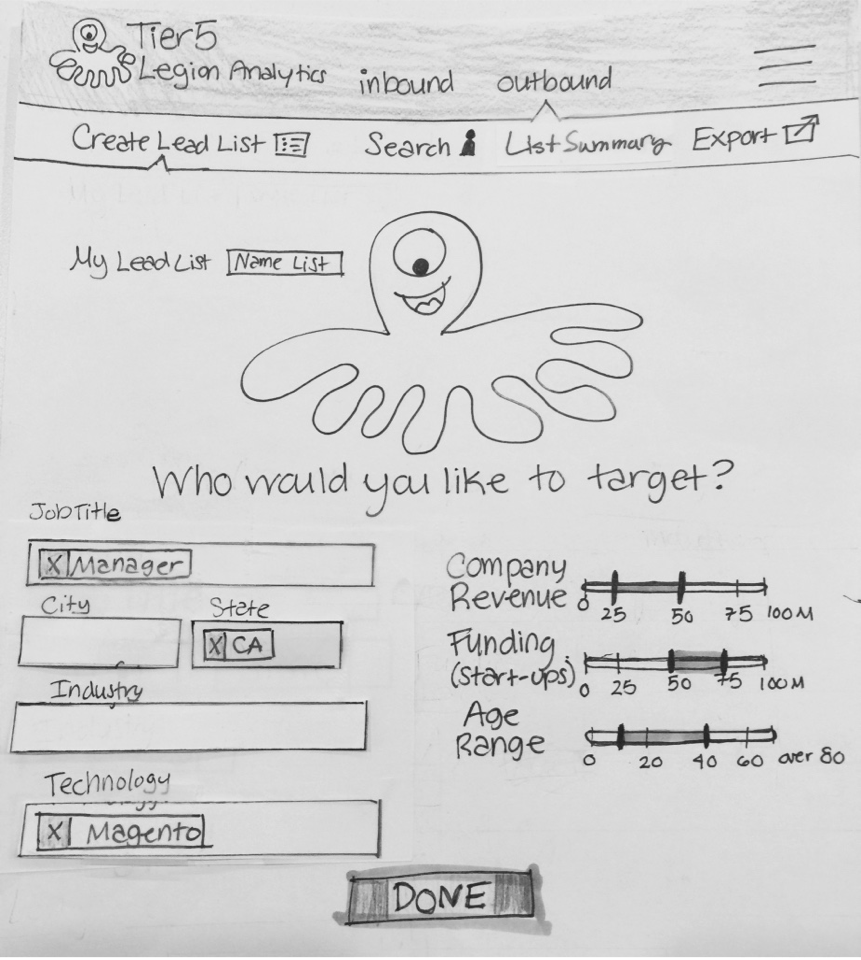 Tier5
Legion Analytics inbound outbound
Create Lead List Search List Summary Export
My Lead List Name List
Who would you like to target?
Job Title
X Manager
City State
X CA
Industry
Technology
X Magento
Company
Revenue
0 25 50 75 100M
Funding
(start-ups)
0 25 50 75 100M
Age
Range
0 20 40 60 over 80
DONE